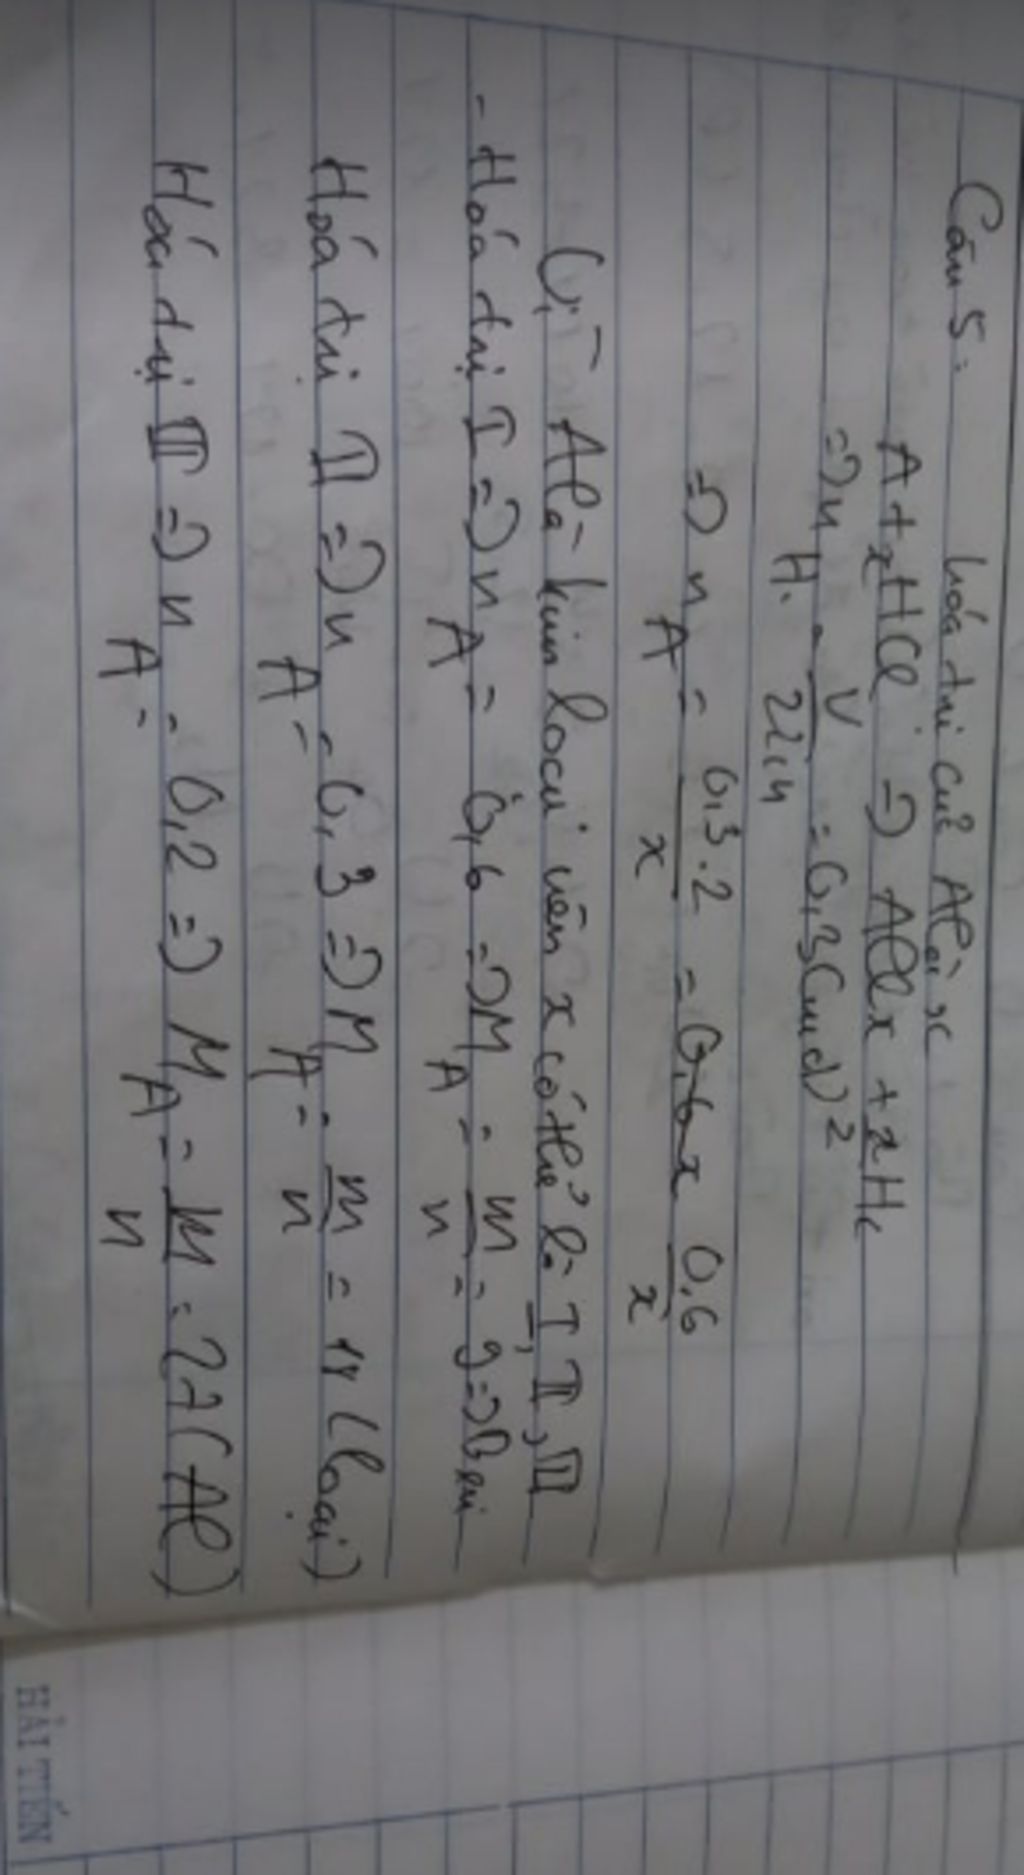 Câu 5: hóa trị củ A là x
A + xHCl => AClx + x/2 H2
=> n H2 = V/22,4 = 0,3(mol)
=> n A = 0,3.2/x = 0,6x 0,6/x
Vì A là kim loại nên x có thể là I, II, III
- Hoá trị I => n A = 0,6 => M A = m/n = 9 => loại
Hoá trị II => n A = 0,3 => M A = m/n = 18 (loại)
Hoá trị III => n A = 0,2 => M A = m/n = 27 (Al)
HẢI TIẾN